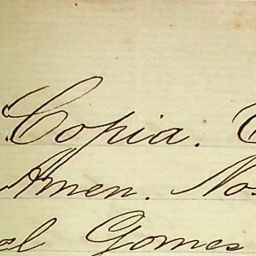 Copia.
Amen. No
al Gomes